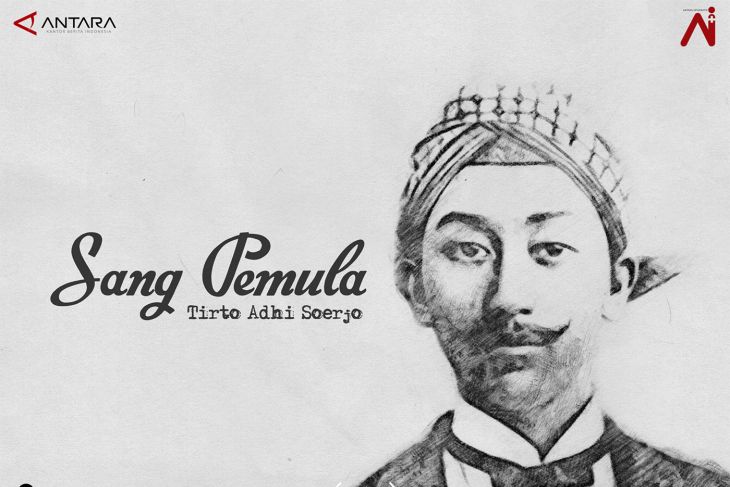 ANTARA
KANTOR BERITA INDONESIA
Ai
Sang Pemula
Tirto Adhi Soerjo